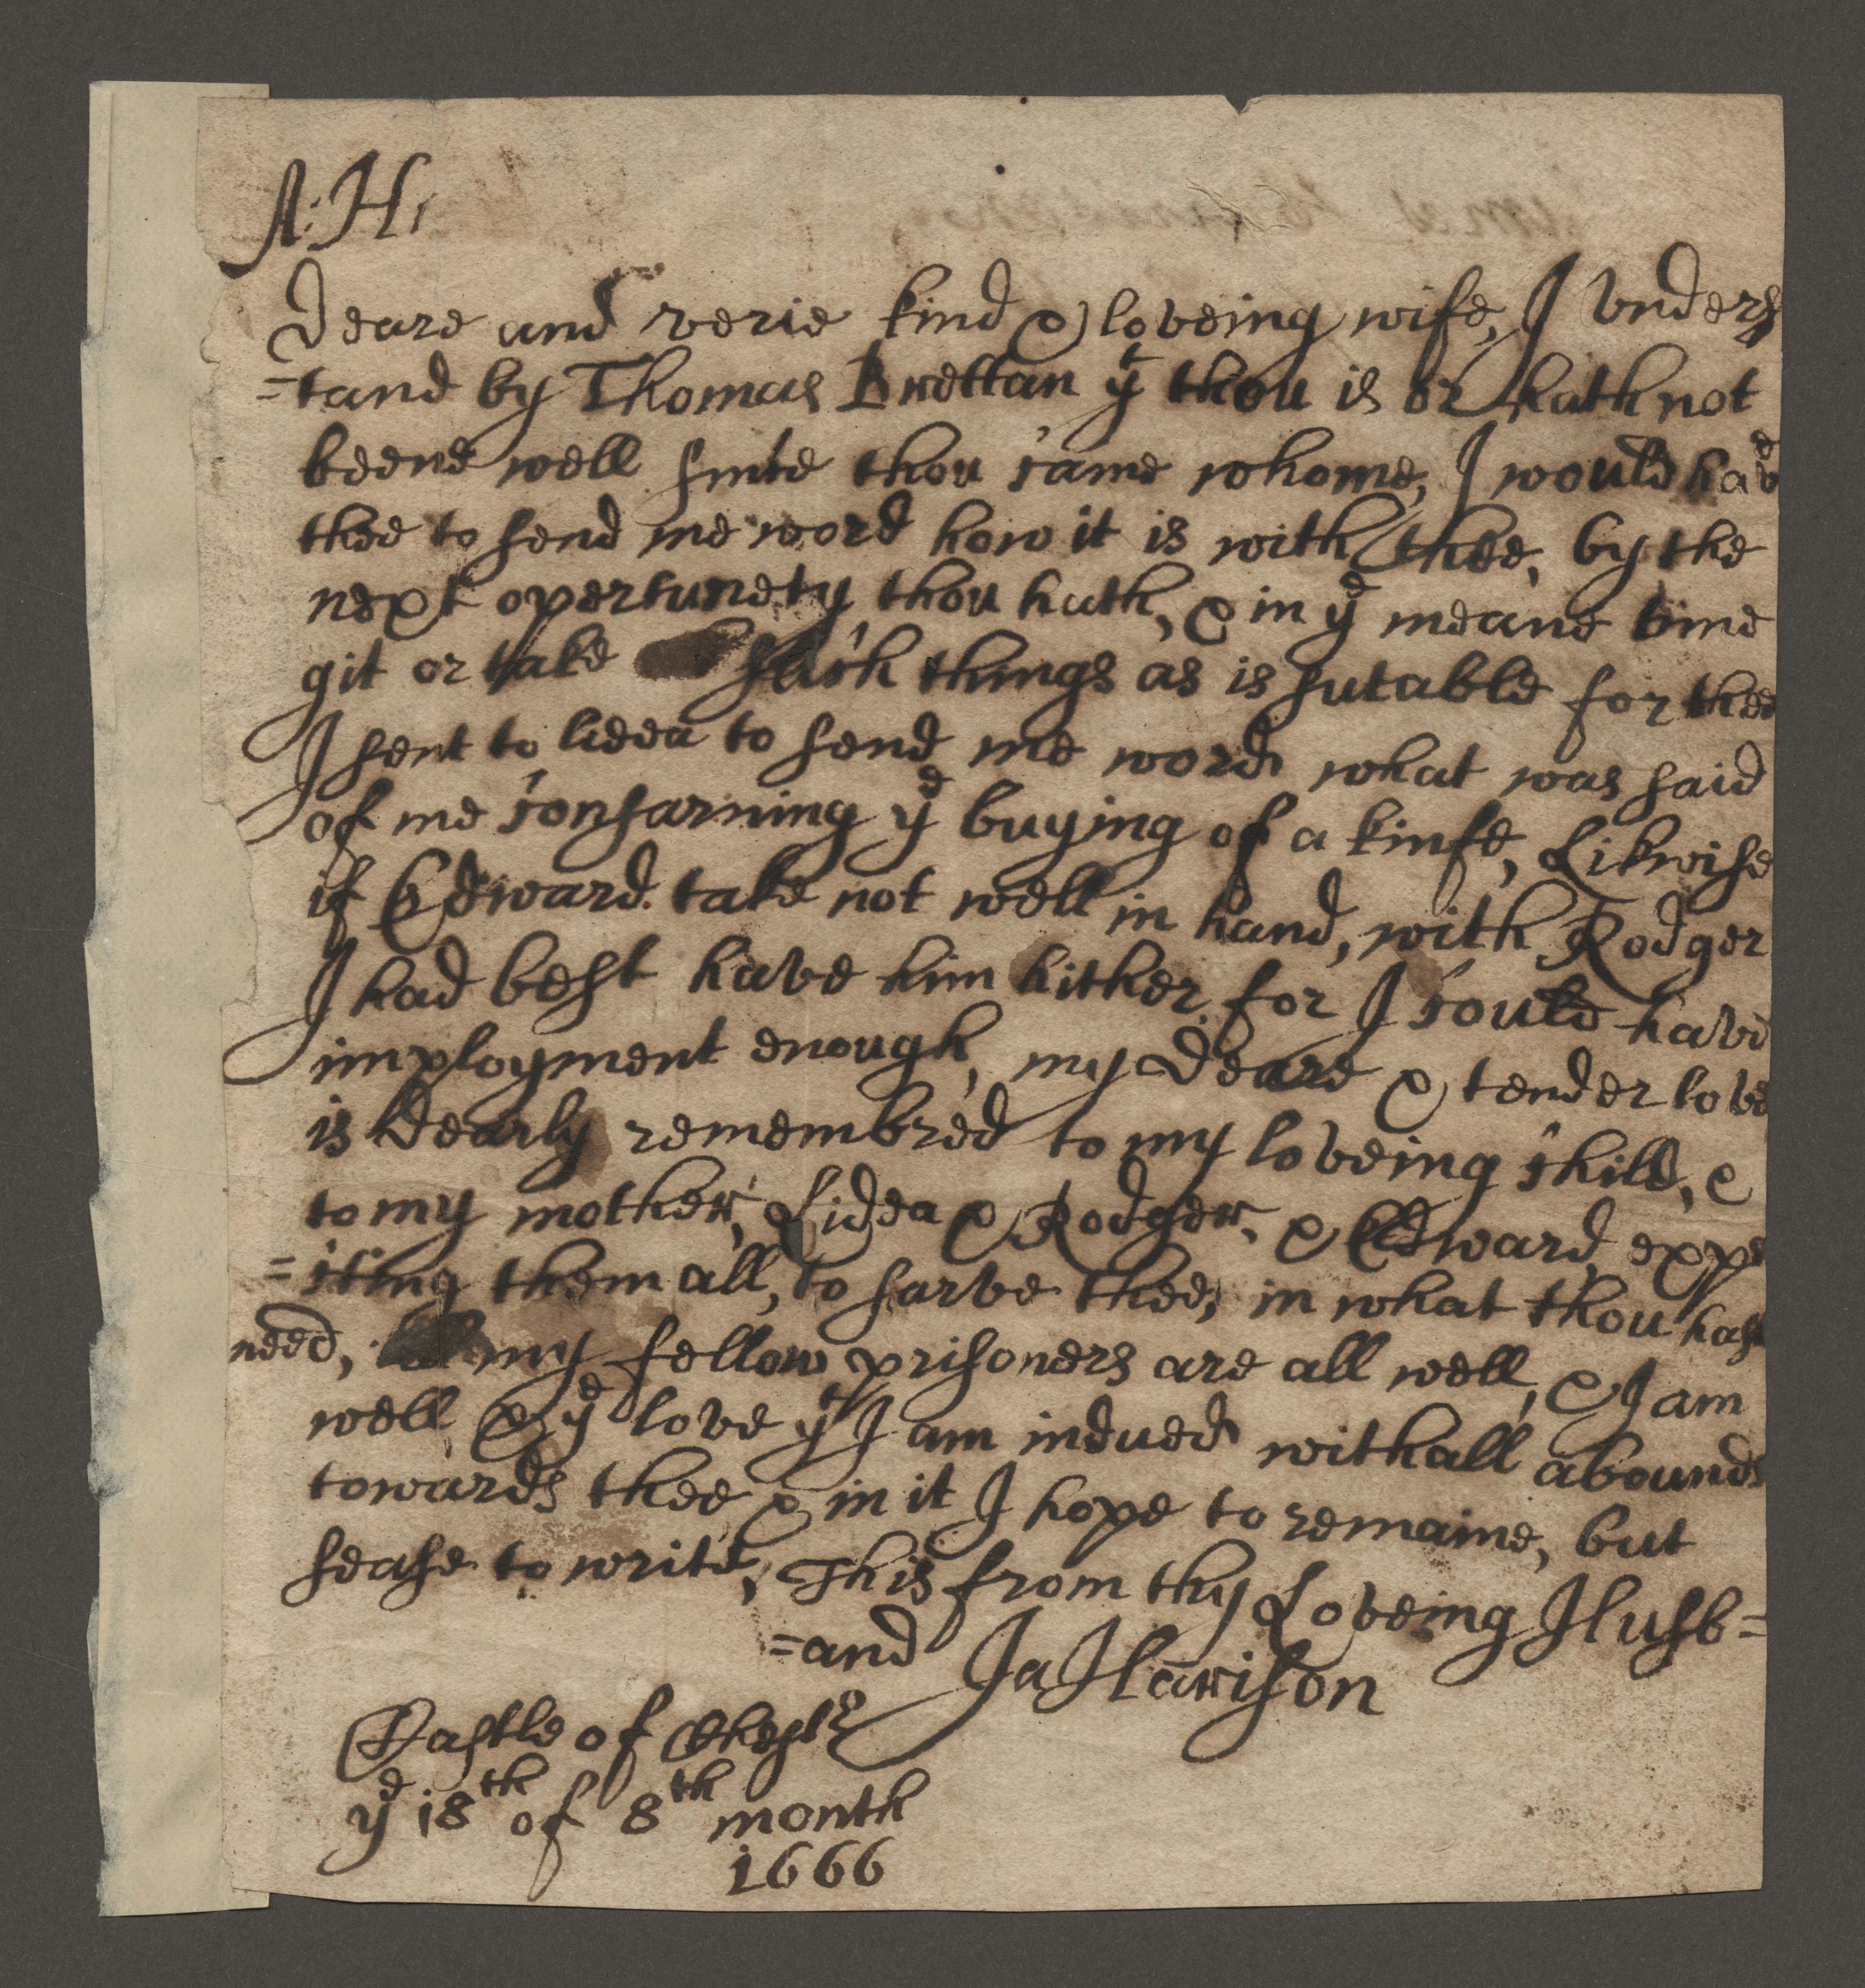 A: H:
Deare and verie kind & loveing wife, I vnders
=tand by Thomas Brettan yt thou is or hath not
beene well since thou came whome, I would have
thee to send me word how it is with thee, by the
next opertunety thou hath, & in ye meane time
git or take such things as is sutable for thee
I sent to lidea to send me word what was said
of me consarning ye buying of a kinfe, Likwise
if Edward take not well in hand, with Rodger
I had best have him hither, for I could have
imployment enough, my deare & tender love
is dearly remembred to my loveing child, &
to my mother, Lidea & Rodger, & Edward expe
=cting them all, to sarve thee, in what thou hast
need, my fellow prisoners are all well, & I am
well & ye love yt I am indued withall abounds
towards thee & in it I hope to remaine, but
sease to write, This from thy Loveing Husb=
=and Ja Harrison
Castle of Chestr
ye 18th of 8th month
1666